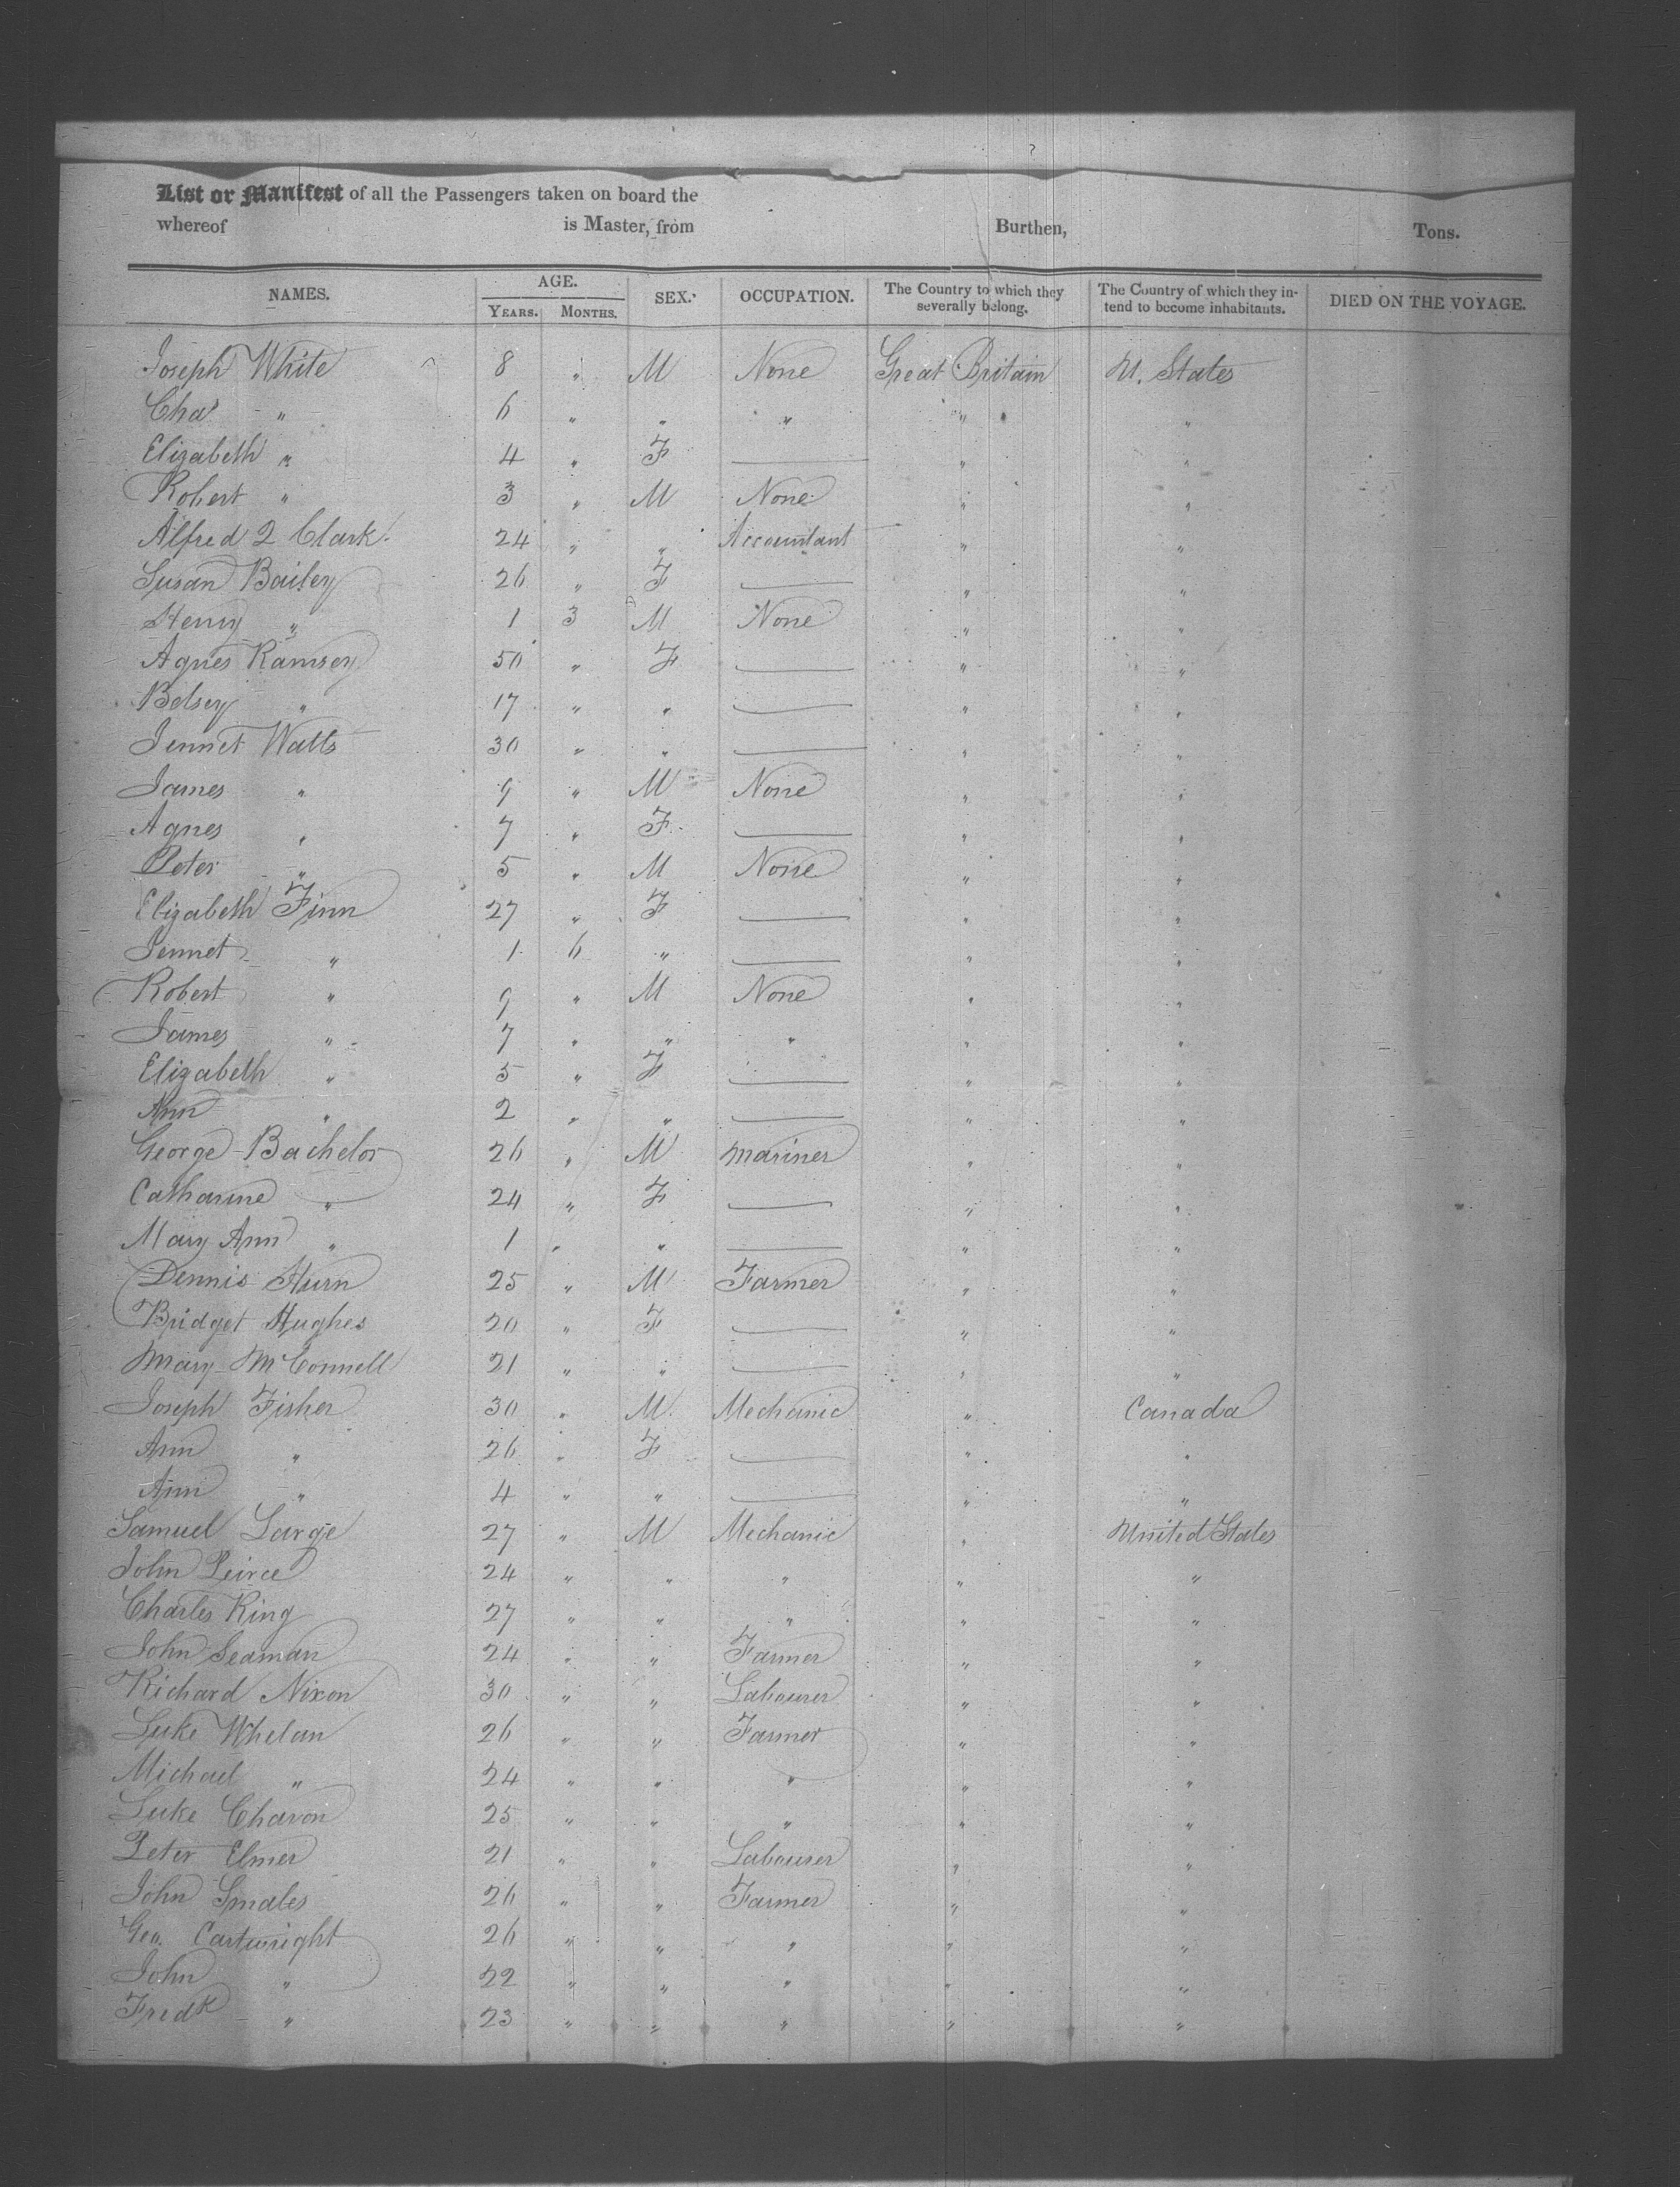 List or Manifest of all the Passengers taken on board the
whereof is Master, from Burthen, Tons.
NAMES. AGE. YEARS. MONTHS. SEX. OCCUPATION. The Country to which they severally belong. The Country of which they intend to become inhabitants. DIED ON THE VOYAGE.
Joseph White 8 " M None Great Britain U. States
Chas " 6 " " " " "
Elizabeth " 4 " F — " "
Robert " 3 " M None " "
Alfred 2 Clark 24 " " Accountant " "
Susan Bailey 26 " F — " "
Henry " 1 3 M None " "
Agnes Ramsey 50 " F — " "
Betsey " 17 " " — " "
Jennet Watts 30 " " — " "
James " 9 " M None " "
Agnes " 7 " F — " "
Peter " 5 " M None " "
Elizabeth Finn 27 " F — " "
Jennet " 1 6 " — " "
Robert " 9 " M None " "
James " 7 " " " " "
Elizabeth " 5 " F — " "
Ann " 2 " " — " "
George Bachelor 26 " M Mariner " "
Catharine " 24 " F — " "
Mary Ann " 1 " " — " "
Dennis Hurn 25 " M Farmer " "
Bridget Hughes 20 " F — " "
Mary McConnell 21 " " — " "
Joseph Fisher 30 " M Mechanic " Canada
Ann " 26 " F — " "
Ann " 4 " " — " "
Samuel Large 27 " M Mechanic " United States
John Peirce 24 " " " " "
Charles King 27 " " " " "
John Seaman 24 " " Farmer " "
Richard Nixon 30 " " Labourer " "
Luke Whelan 26 " " Farmer " "
Michael " 24 " " " " "
Luke Charon 25 " " " " "
Peter Elmer 21 " " Labourer " "
John Smales 26 " " Farmer " "
Geo. Cartwright 26 " " " " "
John " 22 " " " " "
Fredk " 23 " " " " "